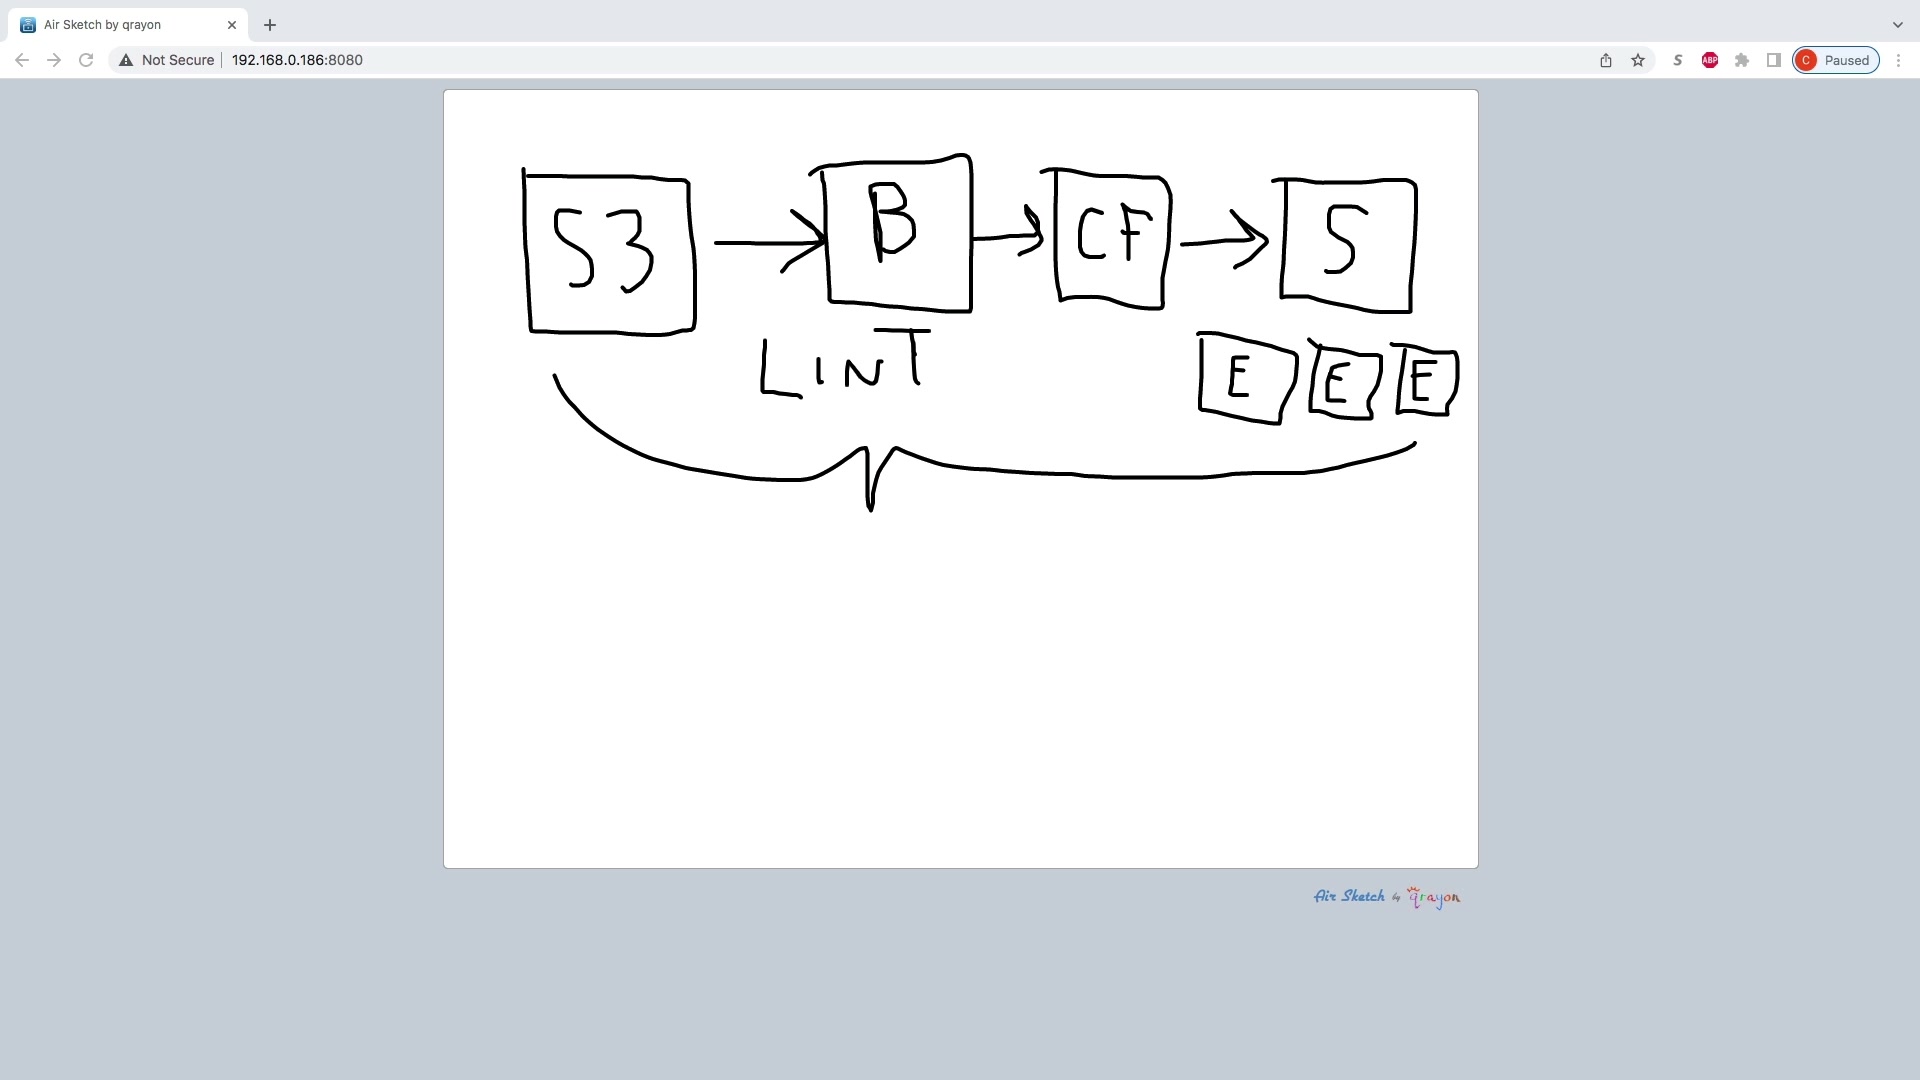 Air Sketch by qrayon
Not Secure 192.168.0.186:8080
S
ABP
C Paused
S3 B CF S
LINT
E E E
Air Sketch by qrayon